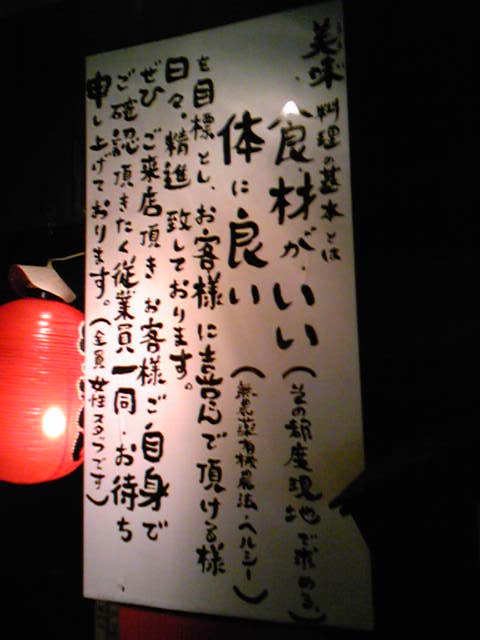 美味 料理の基本とは
食材がいい(その都度現地で求める。)
体に良い(無農薬有機農法・ヘルシー)
を目標とし、お客様に喜んで頂ける様
日々、精進致しております。
ぜひご来店頂きお客様ご自身で
ご確認頂きたく従業員一同お待ち
申し上げております。(全員女性スタッフです)